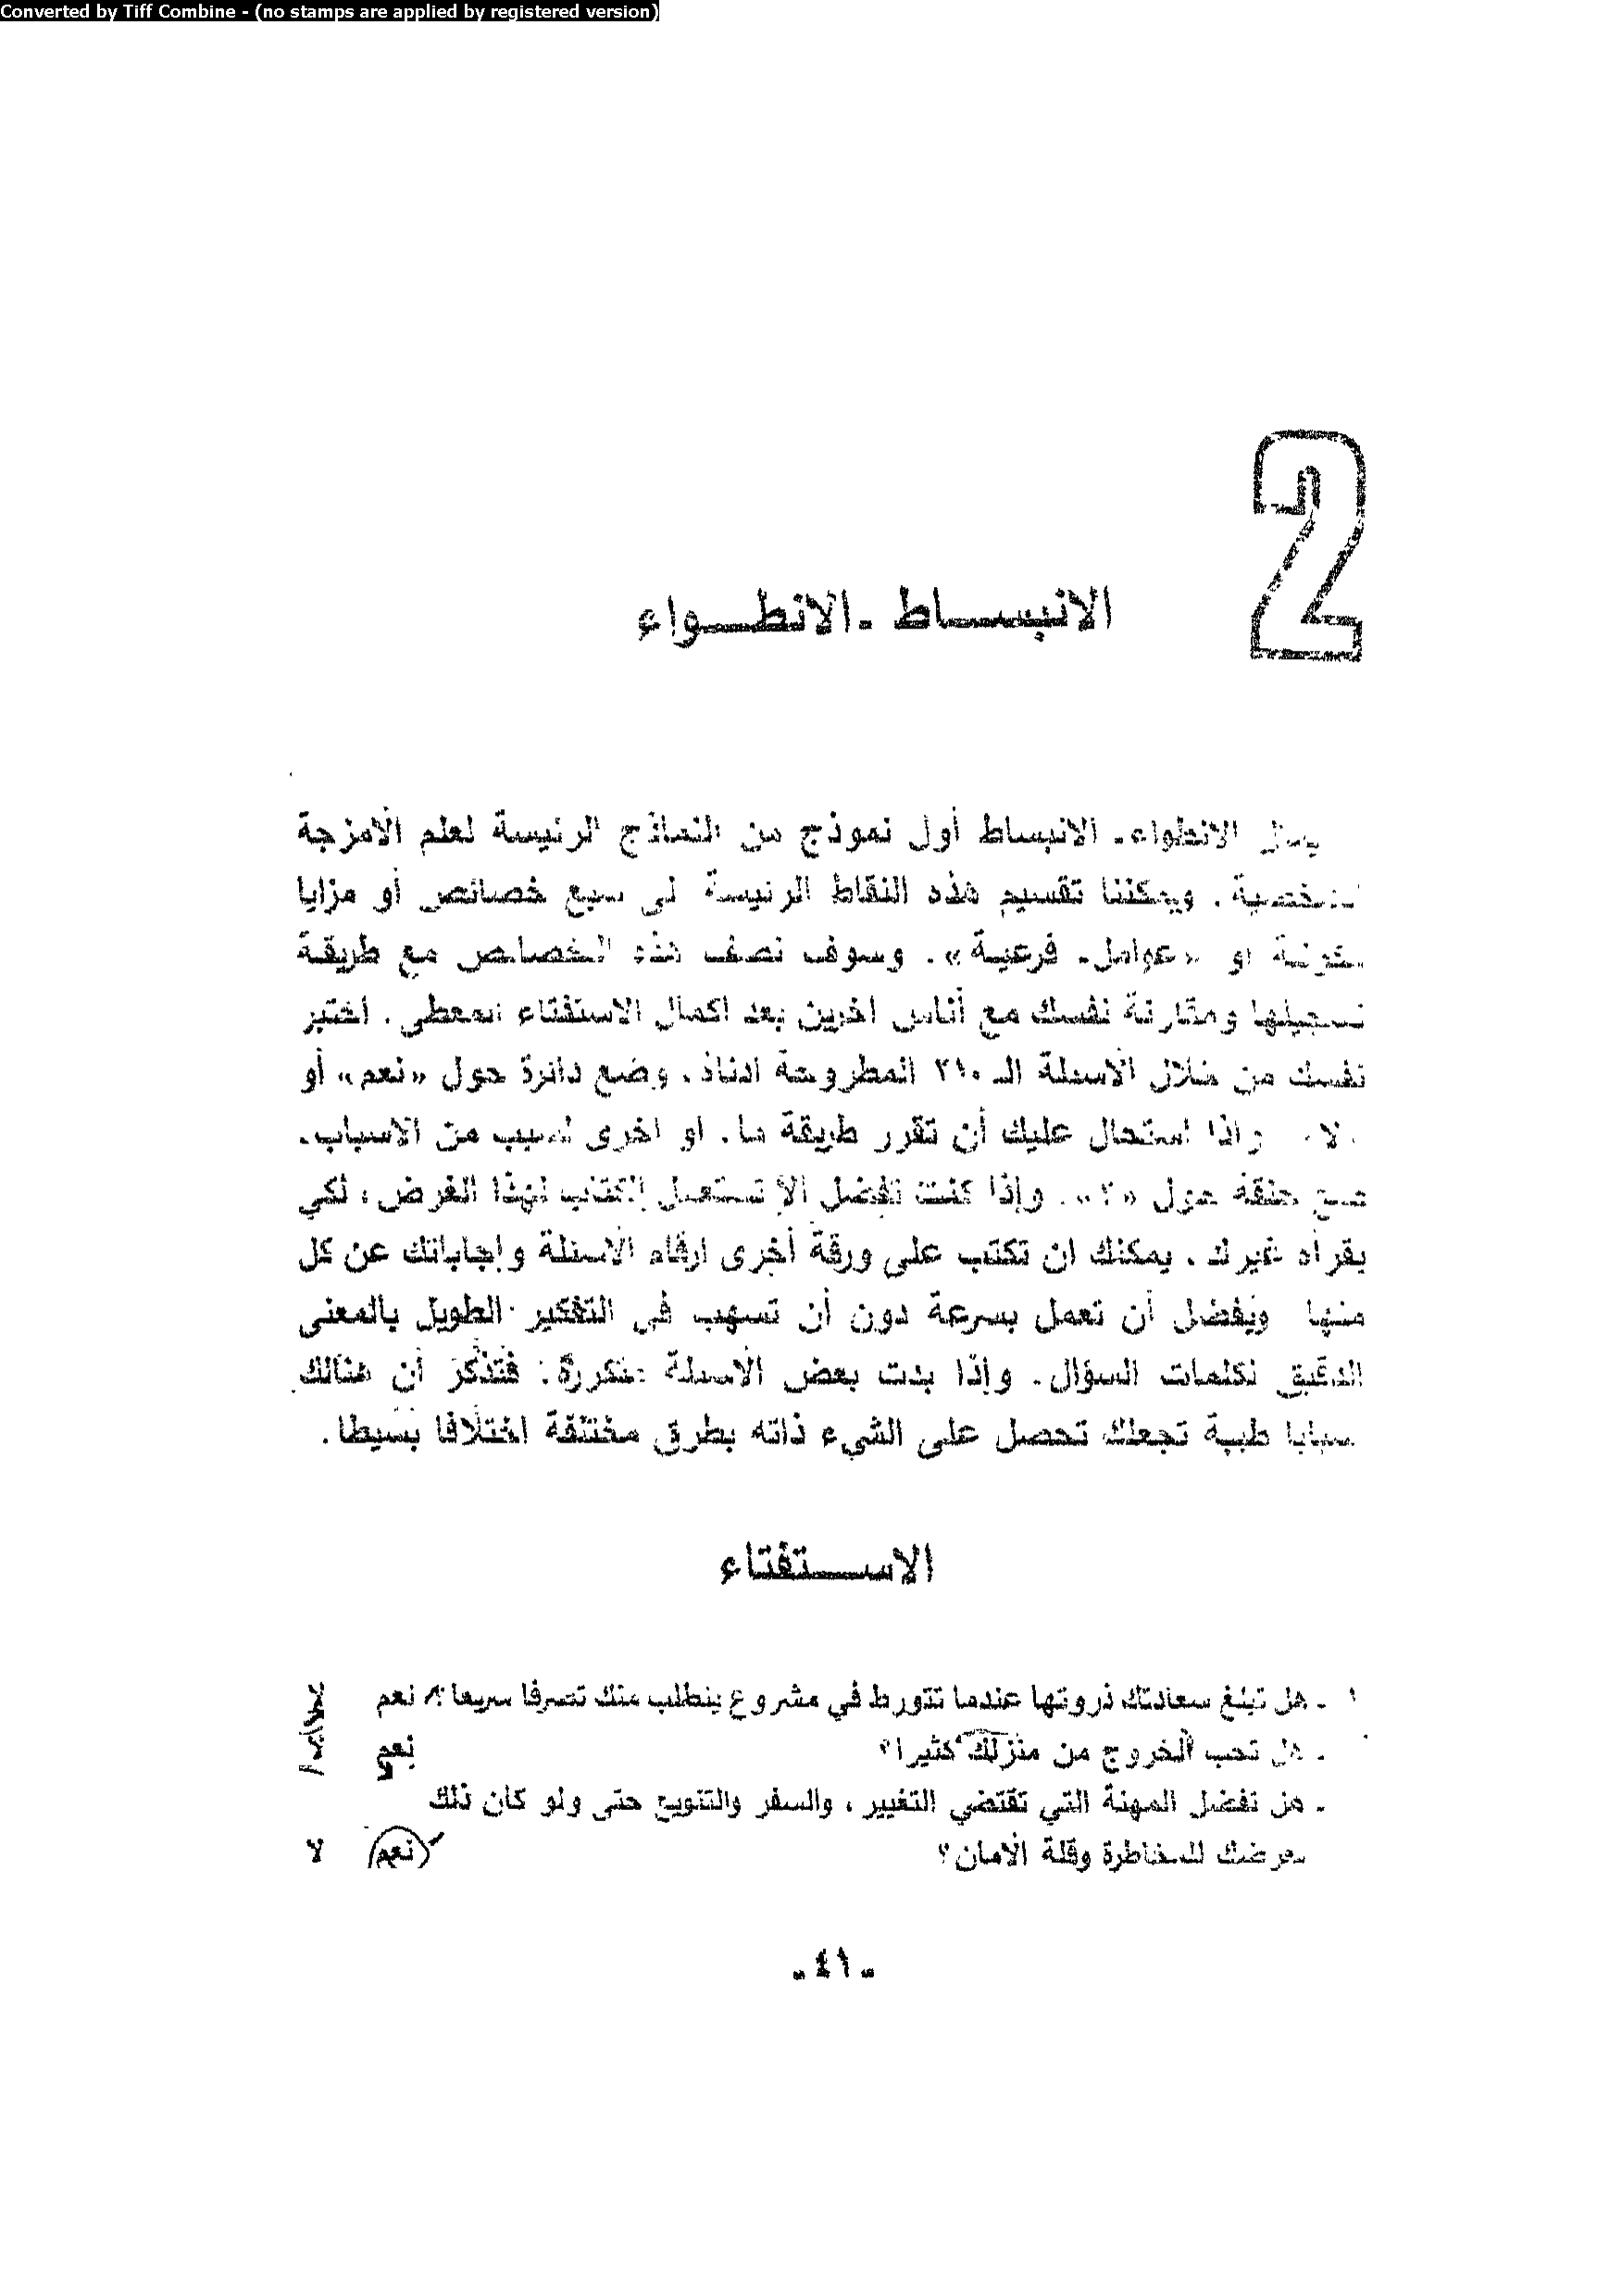 Converted by Tiff Combine - (no stamps are applied by registered version)
2
الانبساط - الانطواء
الانطواء - الانبساط أول نموذج من النماذج الرئيسة لعلم الأمزجة
ويمكننا تقسيم هذه النقاط الرئيسة سبع خصائص أو مزايا
او «عوامل - فرعية». وسوف نصف هذه الخصائص مع طريقة
تسجيلها ومقارنة نفسك مع أناس اخرين بعد اكمال الاستفتاء المعطى. اختبر
نفسك من خلال الأسئلة الـ ٢١٠ المطروحة ادناه، وضع دائرة حول «نعم» أو
لا. واذا استحال عليك أن تقرر طريقة ما. او اخرى لسبب من الأسباب.
ضع حلقة حول «؟». وإذا كنت تفضل ألا تستعمل الكتاب لهذا الغرض، لكي
يقرأه غيرك، يمكنك ان تكتب على ورقة أخرى ارقام الأسئلة وإجاباتك عن كل
منها ويفضل أن تعمل بسرعة دون أن تسهب في التفكير الطويل بالمعنى
الدقيق لكلمات السؤال. وإذا بدت بعض الأسئلة متكررة: فتذكر أن هنالك
تجعلك تحصل على الشيء ذاته بطرق مختلفة اختلافا بسيطا.
الاستفتاء
١ - هل تبلغ سعادتك ذروتها عندما تتورط في مشروع يتطلب منك تصرفا سريعا؟ نعم لا
- هل تحب الخروج من منزلك كثيرا؟ نعم
- هل تفضل المهنة التي تقتضي التغيير، والسفر والتنويع حتى ولو كان ذلك
يعرضك للمخاطرة وقلة الأمان؟ نعم لا
- ٤١ -